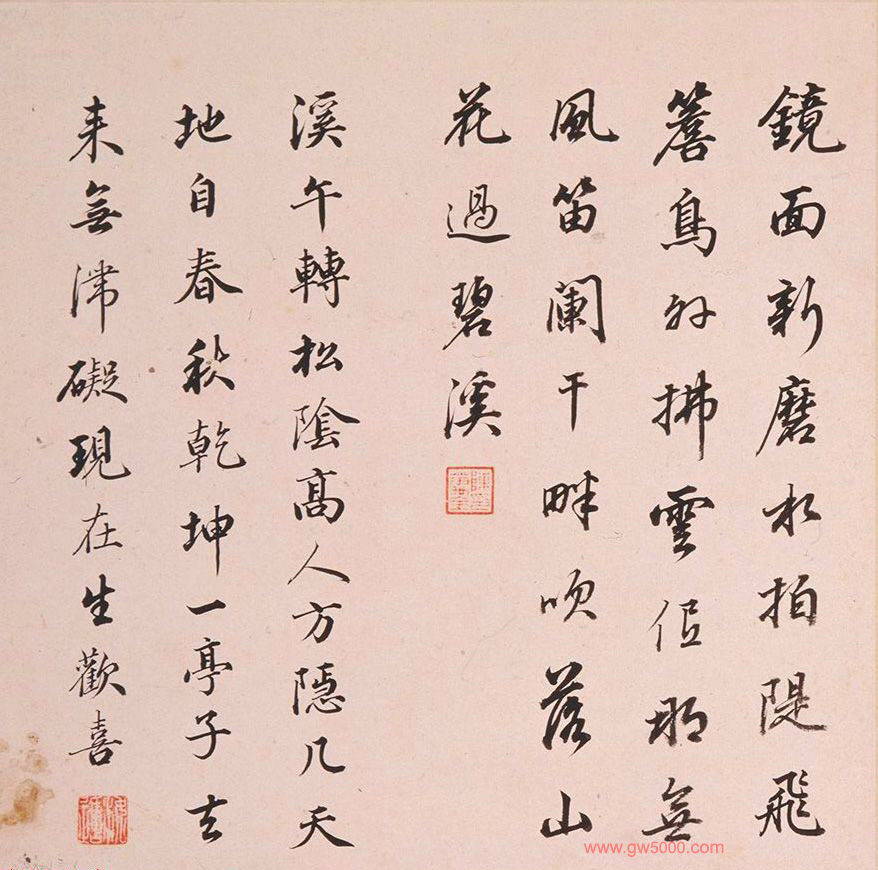 鏡面新磨水拍隄飛
簷鳥外拂雲低那無
風笛闌干畔吹落山
花過碧溪
溪午轉松陰高人方隱几天
地自春秋乾坤一亭子去
来無滯礙現在生歡喜
www.gw5000.com